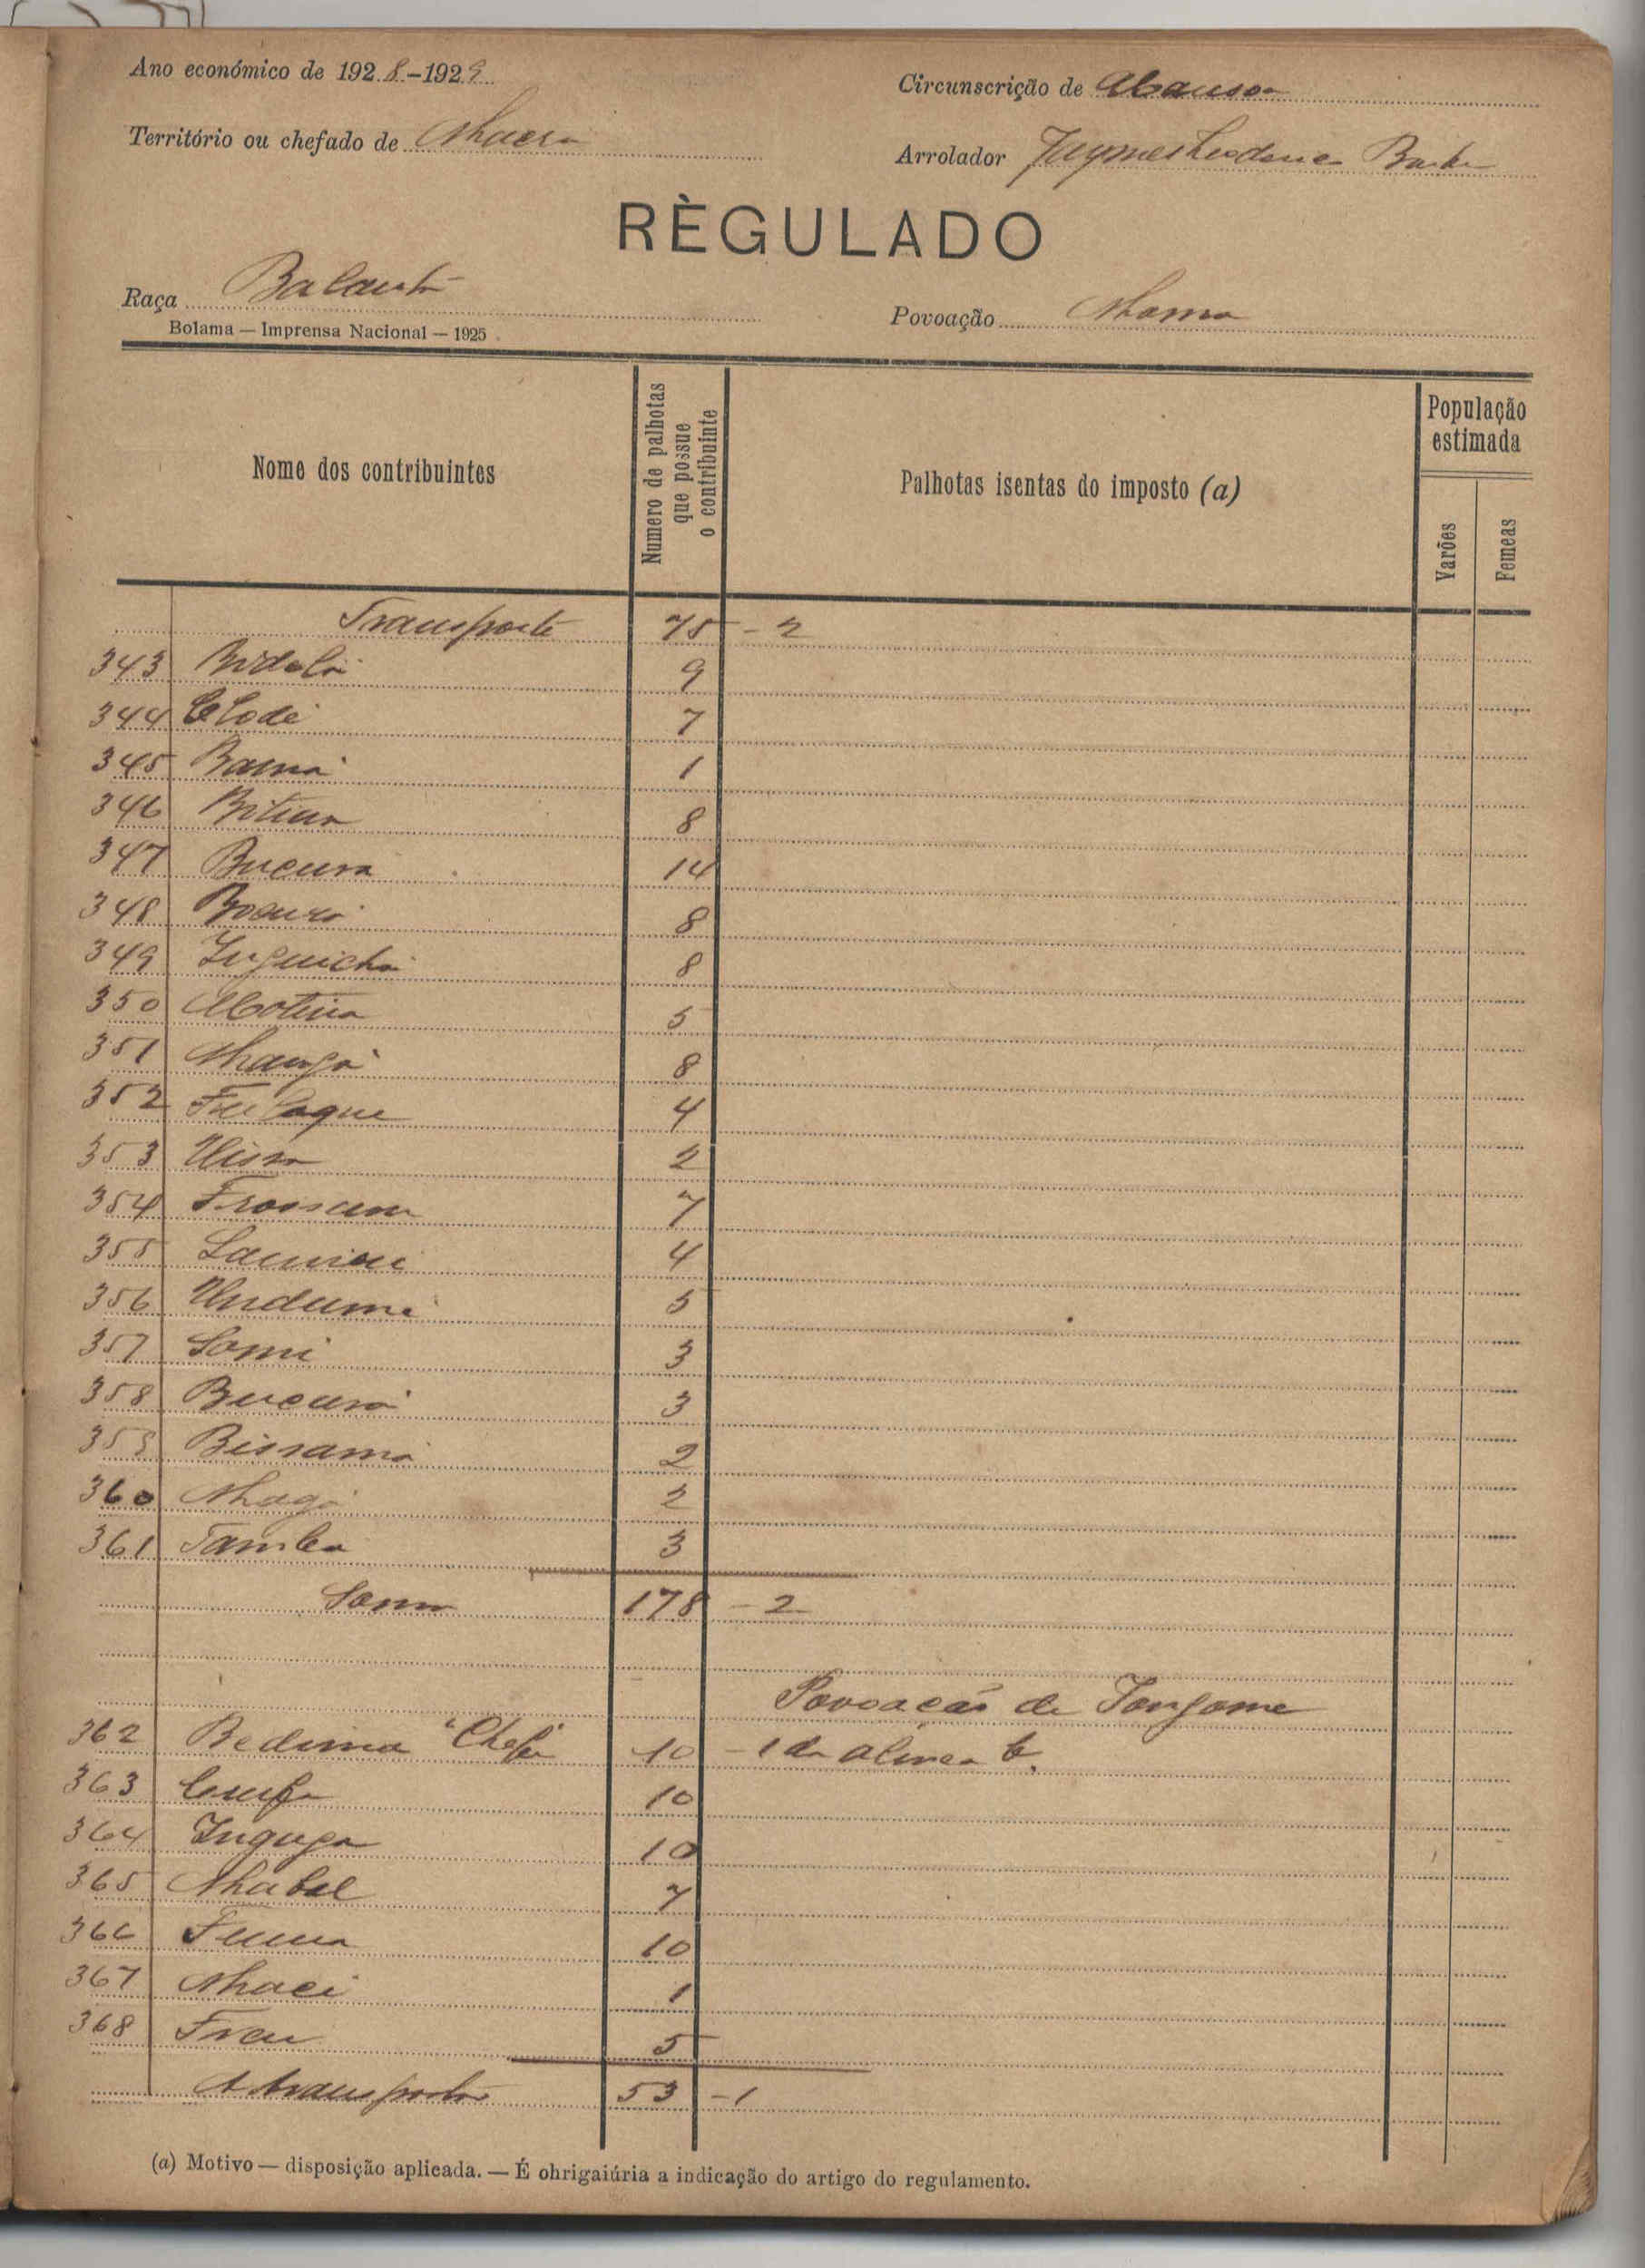 Ano económico de 1928-1929
Circunscrição de Mansoa
Território ou chefado de Nhacra
Arrolador Jaymes
RÈGULADO
Raça Balanta
Bolama — Imprensa Nacional — 1925
Povoação Nhoma
Nome dos contribuintes
Numero de palhotas que possue o contribuinte
Palhotas isentas do imposto (a)
População estimada
Varões
Femeas
Transporte 75 - 2
343 Bidolá 9
344 Clodé 7
345 Bamá 1
346 8
347 Bucura 14
348 8
349 Inguichá 8
350 5
351 Nhangá 8
352 4
353 Uissa 2
354 7
355 4
356 Undumé 5
357 Somi 3
358 Bucurá 3
359 Bissamá 2
360 Nhagá 2
361 Tamba 3
Soma 178 - 2
Povoação de
362 Bedinna "Chefe" 10 - 1 da alinea b.
363 10
364 Inguga 10
365 Nhabal 7
366 10
367 Nhaci 1
368 Frau 5
A transportar 53 - 1
(a) Motivo — disposição aplicada. — É ohrigaiúria a indicação do artigo do regulamento.